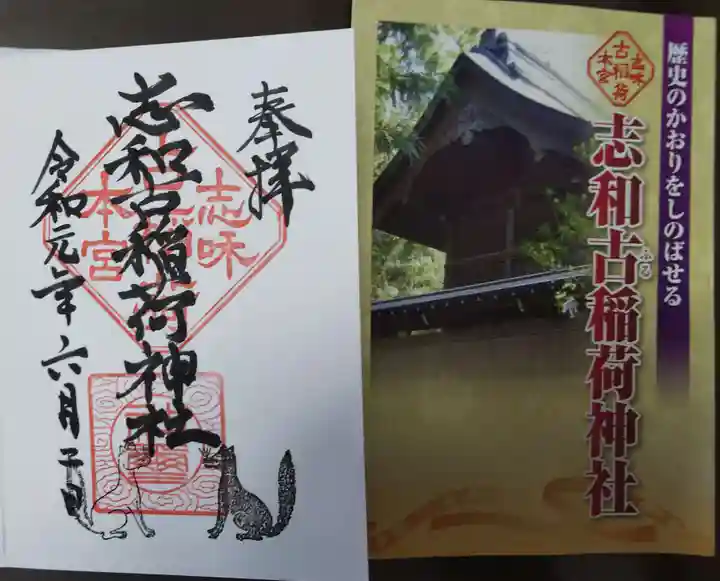 奉拝
志和古稲荷神社
令和元年六月二日
志味
古稲荷
本宮
歴史のかおりをしのばせる
志味
古稲荷
本宮
志和古稲荷神社
ふる